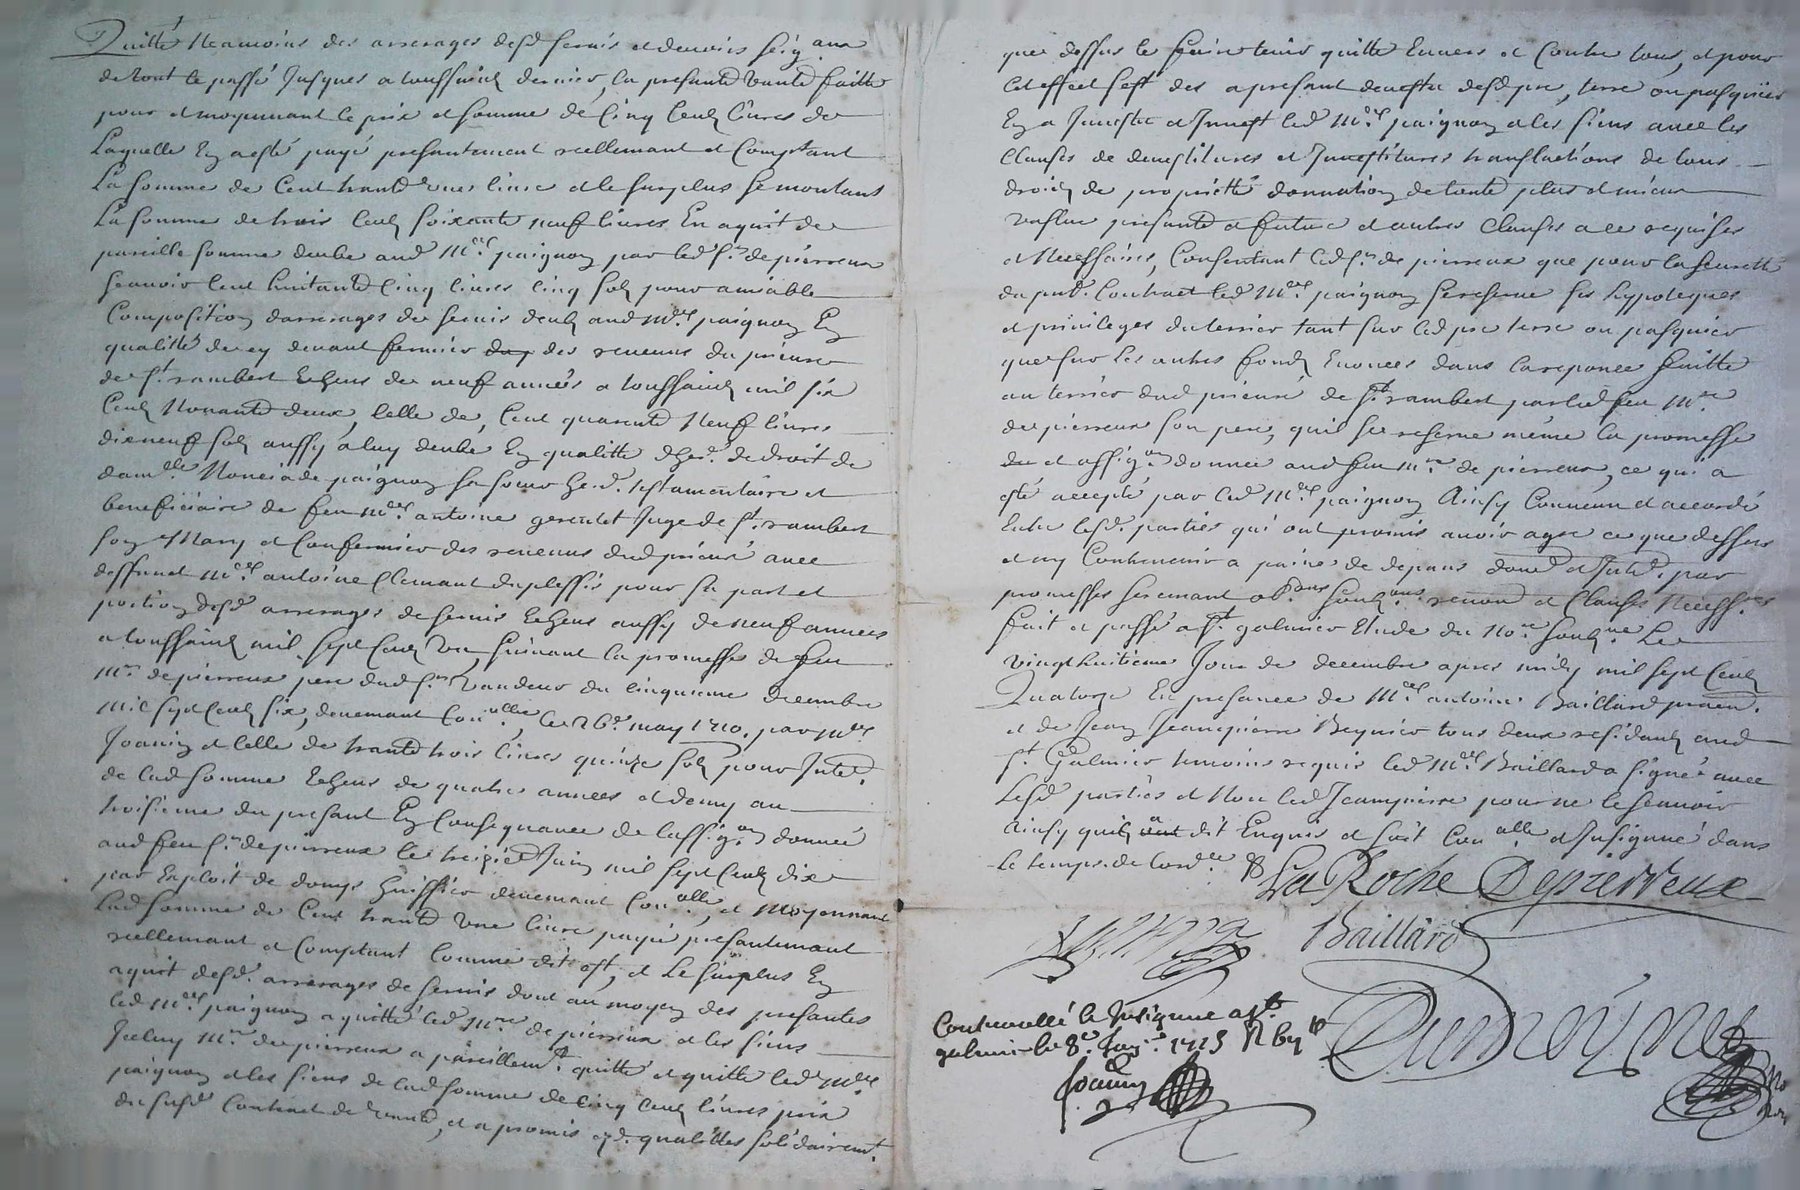 Quitte Neamoins des arrerages desd servis et devoirs seig.aux
de tout le passé Jusques a toussainctz dernier, la presante vante faitte
pour et moyennant le prix et somme de Cinq Centz livres de
Laquelle En a esté payé presantement reellemant et Comptant
La somme de Cent trante une livre et le surplus se montant
La somme de trois Centz soixante neuf livres En aquit de
pareille somme deube aud Mre paignon par led sr depierreux
scavoir Cent huitante Cinq livres cinq solz pour amiable
Composition darrerages de servis deubz aud Mre paignon En
qualitté de cy devant fermier des revenus du prieuré
de st rambert Echeus de neuf années a toussainctz mil six
Centz Nonante deux, Celle de, Cent quarante Neuf livres
dixneuf solz aussy a luy deube En qualitté dher. de droit de
dam.lle paignon sa soeur her. testamentaire et
beneficiaire de feu Mre antoine gerentet Juge de st rambert
son Mary et Confermier des revenus dud prieuré avec
deffunct Mre antoine Clemant duplessis pour sa part et
portion desd arrerages de servis Echeus aussy de neuf années
a toussainctz mil sept Centz un, suivant la promesse de feu
Mr depierreux pere dud sr Vandeur du cinquieme decembre
mil sept Centz six, deuemant Con.ollée le 26e may 1710. par Mre
Joanin et Celle de trante trois livres quinze solz pour Intt.
de lad somme Echeus de quatre années et demy au
troisieme du presant En Consequance de lassig.on donnée
aud feu sr depierreux le treizie Juin mil sept Centz dix
par Exploit de huissier deuemant Con.ollé, et Moyennant
Lad somme de Cent trante Une livre payée presantemant
reellemant et Comptant Comme dit est, et Le surplus En
aquit desd. arrerages de servis dont au moyen des presantes
led Mre paignon a quitté led Mre de pierreux et les siens
Iceluy Mre de pierreux a pareillemt quitté et quitte led Mre
paignon et les siens de lad somme de Cinq Centz livres prix
du susd Contract de vante, et a promis esd. qualittes solidairemt.
que dessus le faire tenir quitte Envers et Contre tous, et pour
Cet effect sest des a presant devestu desd pre, terre ou pasquier
En a Investu et Invest led Mre paignon et les siens avec les
Clauses de devestitures et Investitures translactions de tous
droictz de proprietté donnation de toute plus et mieux
vallue presante et future et autres Clauses a ce requises
et Necessaires, Consentant led sr de pierreux que pour la seuretté
du pnt. Contract led Mre paignon se reserve ses hypoteques
et privileges du terrier tant sur led pre terre ou pasquier
que sur les autres fondz Enoncés dans la reponce faitte
au terrier dud prieuré de st rambert par led feu Mre
depierreux son pere, quil se reserve même la promesse
et assig.on donnée aud feu Mre de pierreux, ce qui a
esté accepté par led Mre paignon Ainsy Convenu et accordé
Entre lesd. parties qui ont promis avoir agre ce que dessus
et ny Contrevenir a paine de depans dom. et Intt. par
promesses seremant ob.ons soub.ons renon. et Clauses Necess.res
fait et passé a st galmier Etude du No.re soub.ne Le
vingt huitieme Jour de decembre apres midy mil sept Centz
Quatorze En presance de Mre antoine Baillard praen.
et de Jean Jeanpierre Reynier tous deux residantz aud
st Galmier temoins requis led Mre Baillard a signé avec
Lesd parties et Non led Jeanpierre pour ne le scavoir
Ainsy quil a dit Enquis et soit Con.ollé et Insignué dans
Le temps de Lord.ce
La Roche Depierreux
Baillard
Controvellé & Insignue a st
galmier le 8e Janr 1715
Joanin
Dumoynes